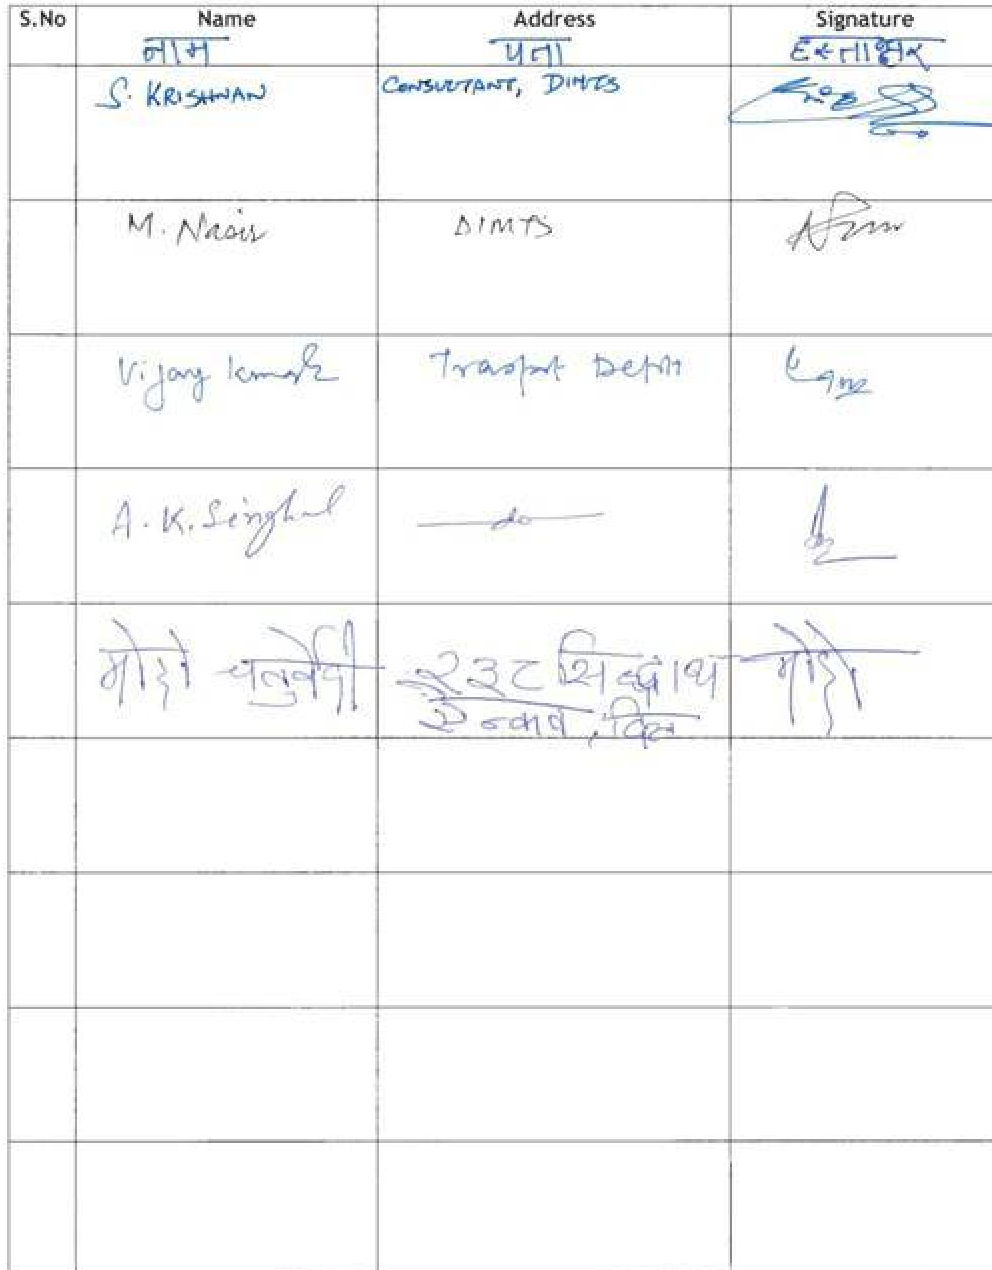 S.No Name Address Signature
नाम पता हस्ताक्षर
S. KRISHNAN CONSULTANT, DIMTS
M. Nasir DIMTS
Vijay Kumar Transport Deptt
A. K. Singhal do
चतुर्वेदी २३८ सिद्धार्थ